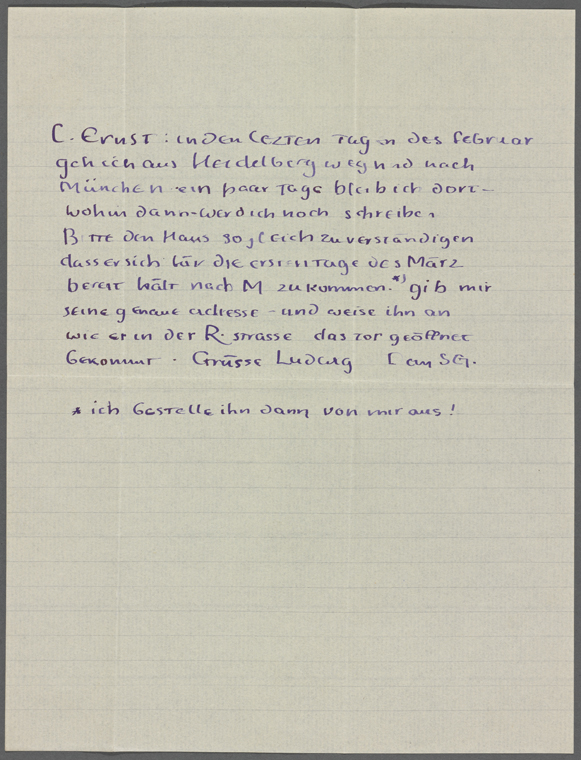 L. Ernst: in den lezten tagen des februar
geh ich aus Heidelberg weg und nach
München ein paar tage bleib ich dort –
wohin dann – werd ich noch schreiben
Bitte den Hans sogleich zu verständigen
dass er sich für die ersten tage des März
bereit hält nach M zu kommen. *) gib mir
seine genaue adresse – und weise ihn an
wie er in der R. strasse das tor geöffnet
bekommt. Grüsse Ludwig
* ich bestelle ihn dann von mir aus!